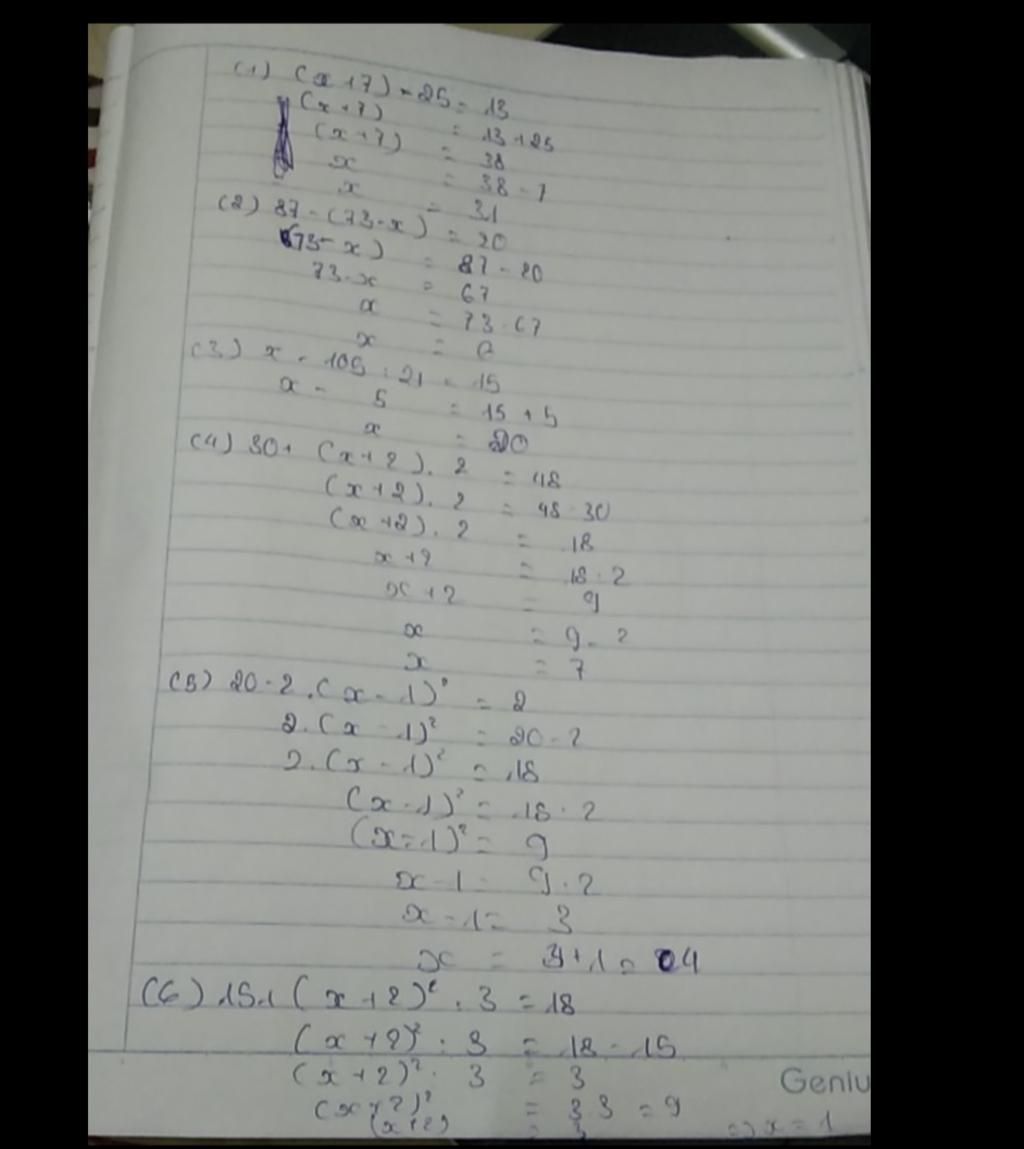 (1) (x+7) - 25 = 13
(x+7) = 13 + 25
(x+7) = 38
x = 38 - 7
x = 31
(2) 87 - (73 - x) = 20
(73 - x) = 87 - 20
73 - x = 67
x = 73 - 67
x = 6
(3) x - 105 : 21 = 15
x - 5 = 15 + 5
x = 20
(4) 30 + (x+2) . 2 = 48
(x+2) . 2 = 48 - 30
(x+2) . 2 = 18
x + 2 = 18 : 2
x + 2 = 9
x = 9 - 2
x = 7
(5) 20 - 2 . (x - 1)² = 2
2 . (x - 1)² = 20 - 2
2 . (x - 1)² = 18
(x - 1)² = 18 : 2
(x - 1)² = 9
x - 1 = 9 : 2
x - 1 = 3
x = 3 + 1 = 4
(6) 15 + (x + 2)² : 3 = 18
(x + 2)² : 3 = 18 - 15
(x + 2)² : 3 = 3
(x + 2)² = 3 . 3 = 9
(x + 2) = 3 => x = 1
Geniu